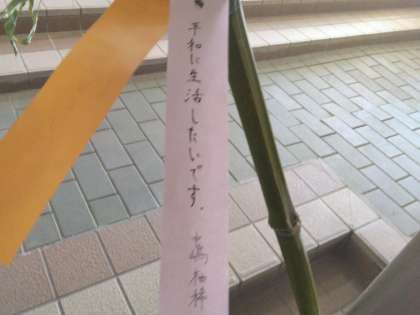 平和に生活したいです。